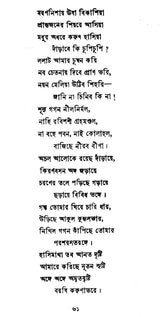 মরণনিশায় উষা বিকাশিয়া
শ্রান্তজনের শিয়রে আসিয়া
মধুর অধরে করুণ হাসিয়া
দাঁড়াবে কি চুপিচুপি?
ললাট আমার চুম্বন করি
নব চেতনায় দিবে প্রাণ ভরি,
নয়ন মেলিয়া উঠিব শিহরি—
জানি না চিনিব কি না!
শূন্য গগন নীলনির্মল,
নাহি রবিশশী গ্রহমণ্ডল,
না বহে পবন, নাই কোলাহল,
বাজিছে নীরব বীণা।
অচল আলোকে রয়েছ দাঁড়ায়ে,
কিরণবসন অঙ্গ জড়ায়ে
চরণের তলে পড়িছে গড়ায়ে
ছড়ায়ে বিবিধ ভঙ্গে।
গন্ধ তোমার ঘিরে চারি ধার,
উড়িছে আকুল কুন্তলভার,
নিখিল গগন কাঁপিছে তোমার
পরশরসতরঙ্গে।
হাসিমাখা তব আনত দৃষ্টি
আমারে করিছে নূতন সৃষ্টি
অঙ্গে অঙ্গে অমৃতবৃষ্টি
বরষি করুণাভরে।
৬১